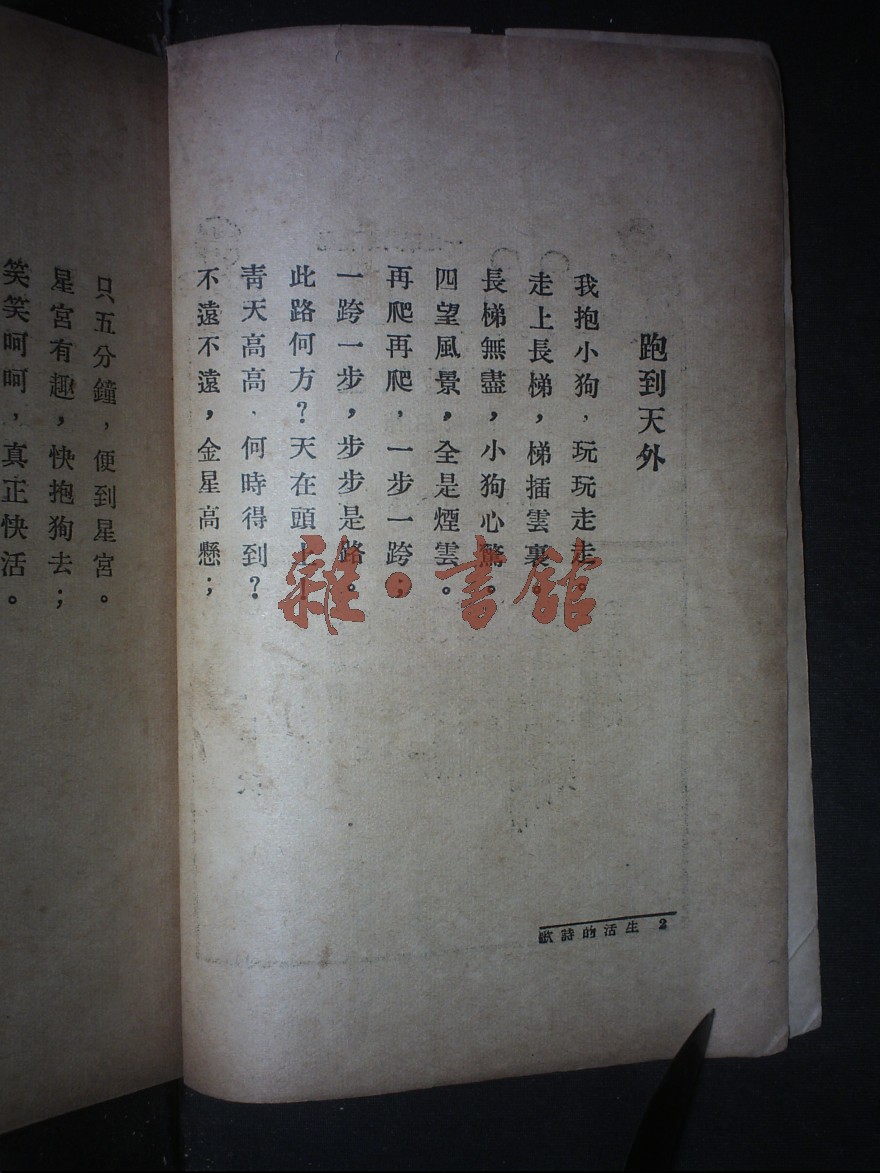 跑到天外
我抱小狗，玩玩走走。
走上長梯，梯插雲裏。
長梯無盡，小狗心驚。
四望風景，全是煙雲。
再爬再爬，一步一跨；
一跨一步，步步是路。
此路何方？天在頭上！
青天高高，何時得到？
不遠不遠，金星高懸；
只五分鐘，便到星宮。
星宮有趣，快抱狗去；
笑笑呵呵，真正快活。
歌詩的活生 2
雜·書館